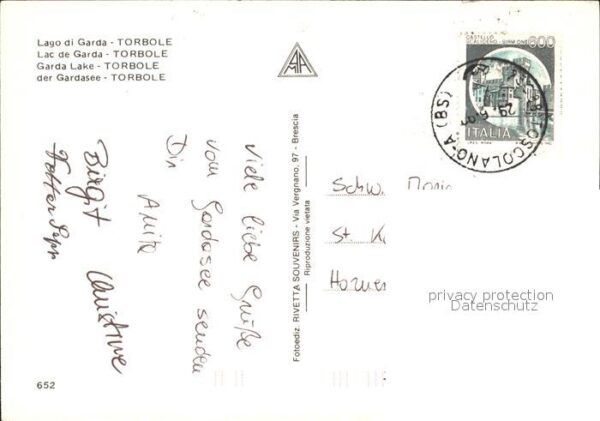 Lago di Garda - TORBOLE
Lac de Garda - TORBOLE
Garda Lake - TORBOLE
der Gardasee - TORBOLE
CASTELLO
SCALIGERO - SIRMIONE
600
ITALIA
TOSCOLANO-A (BS)
29
Viele liebe Grüße
vom Gardasee senden
Dir
Anita
Birgit
Christine
Fotoediz. RIVETTA SOUVENIRS - Via Vergnano, 97 - Brescia
Riproduzione vietata
Schw.
St. K
privacy protection
Datenschutz
652